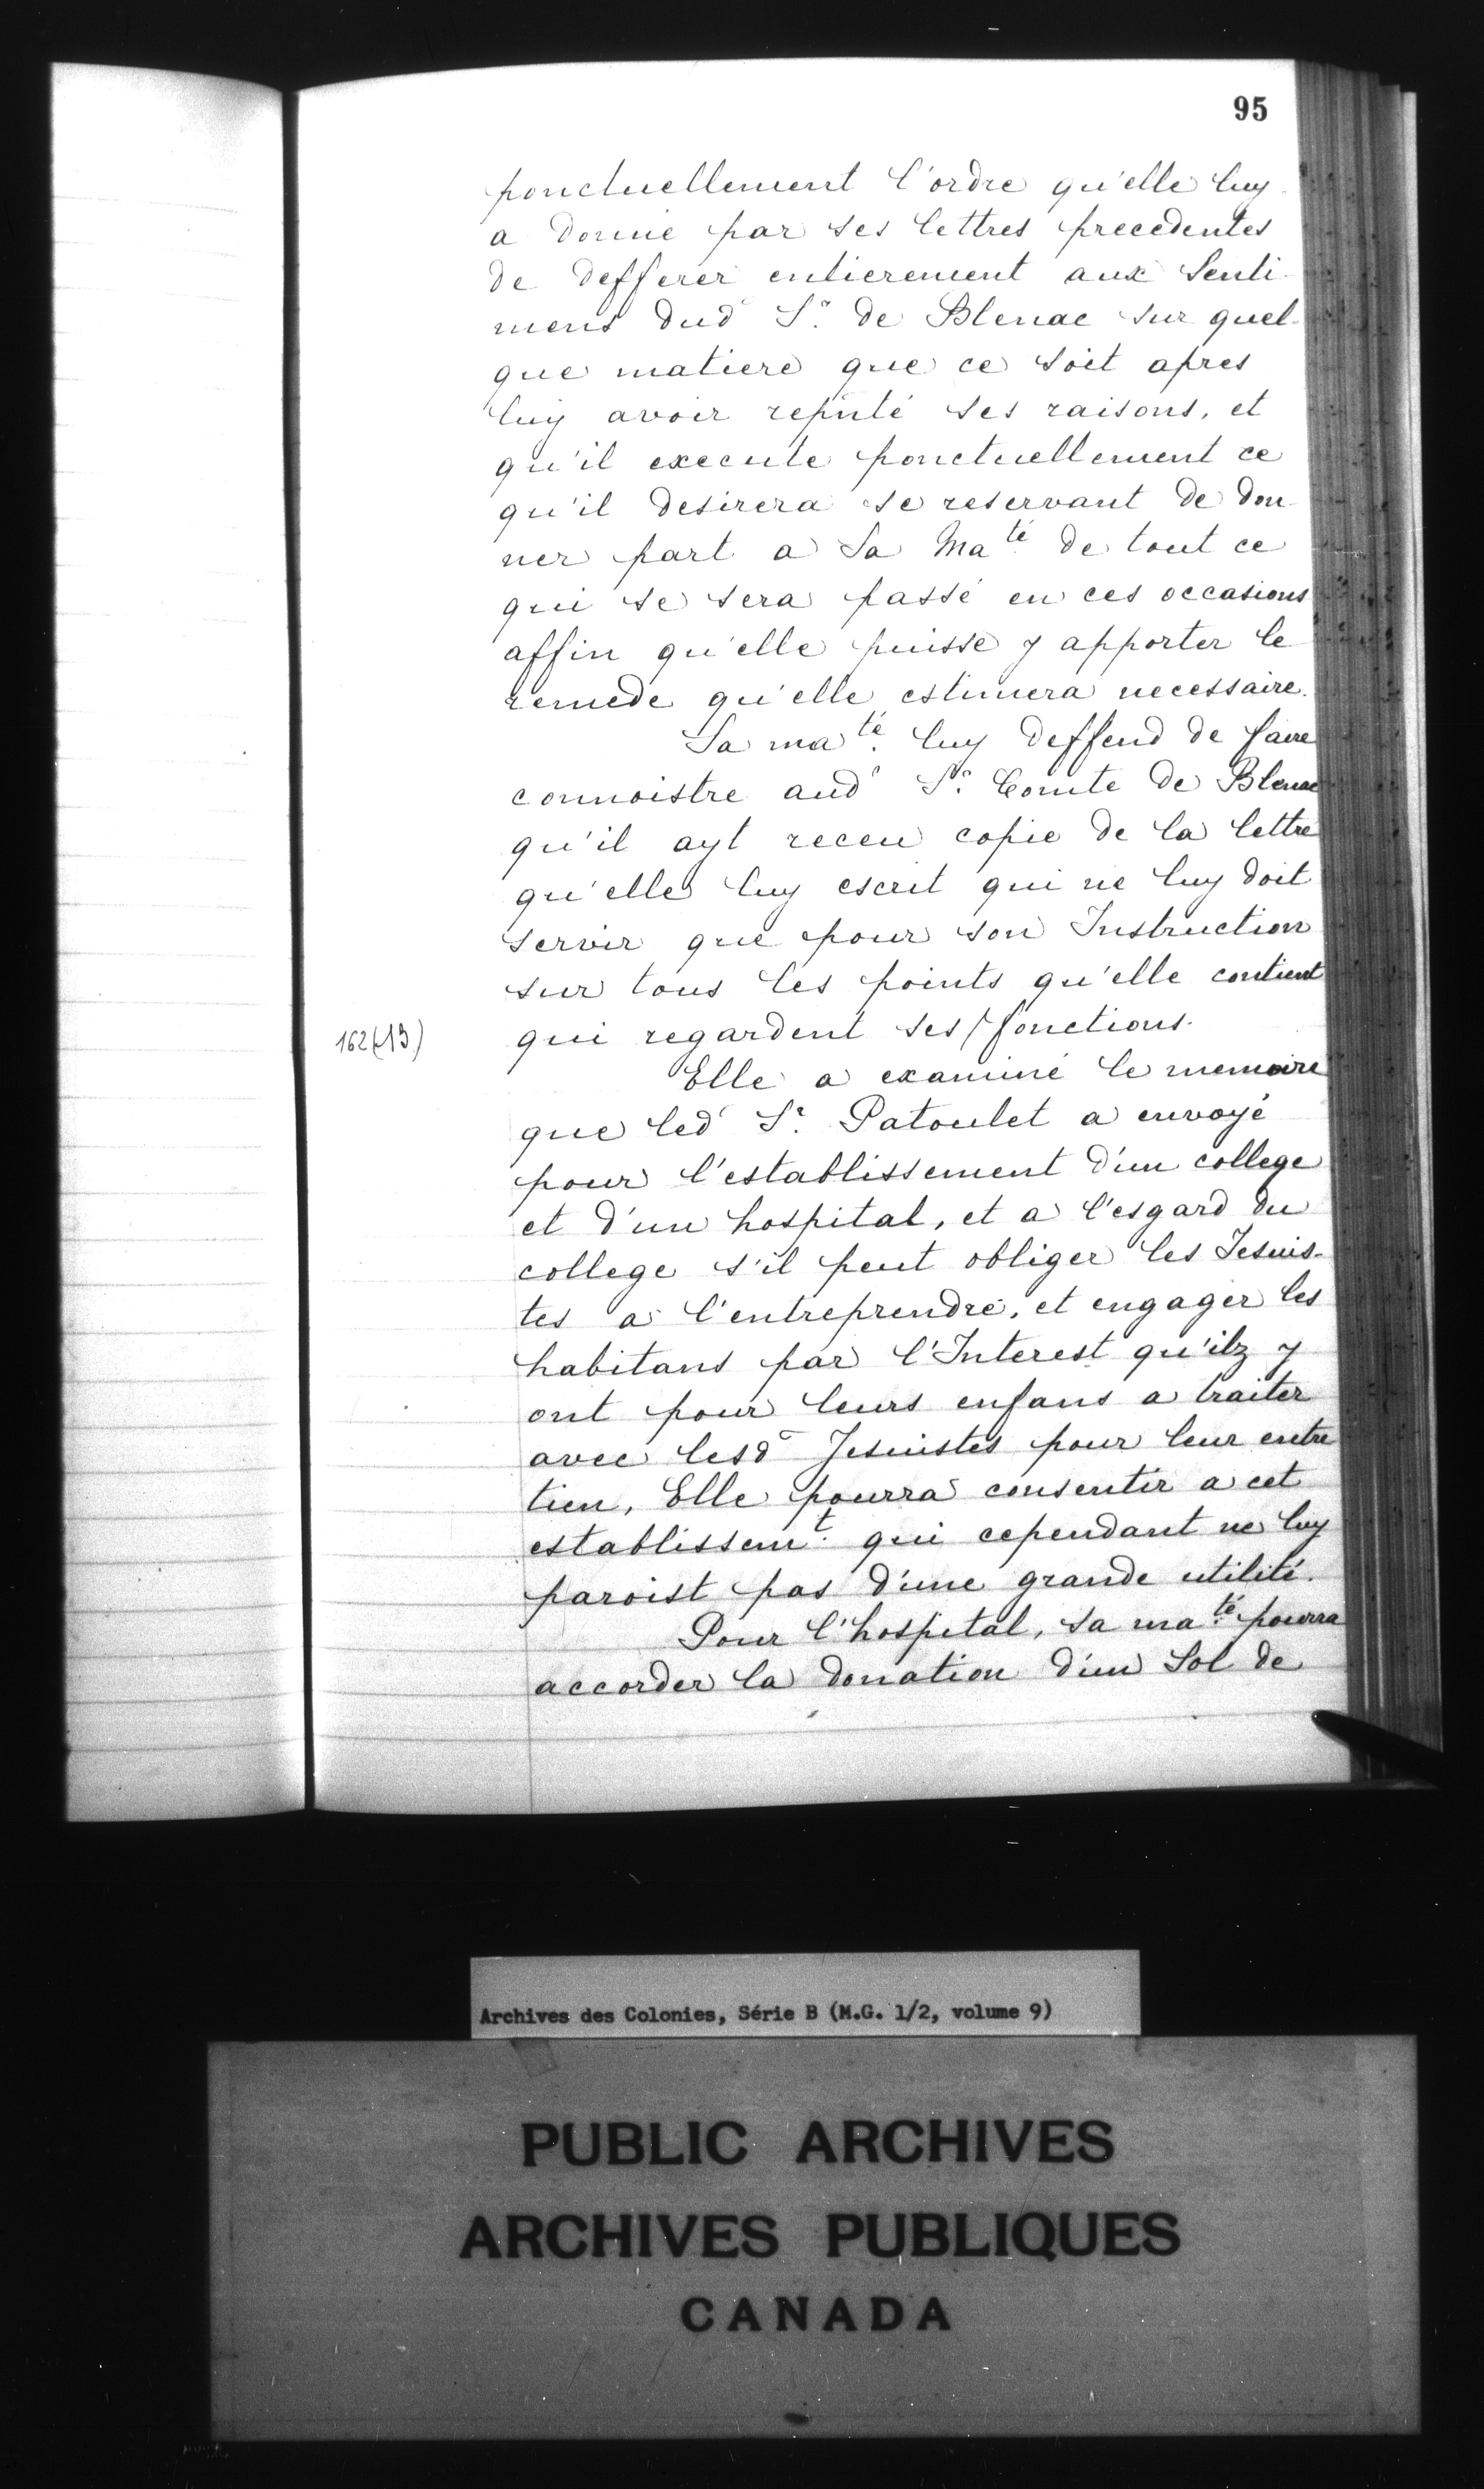 95
ponctuellement l'ordre qu'elle luy
a donné par ses lettres precedentes
de defferer entierement aux Senti-
mens dud Sr. de Blenac sur quel-
que matiere que ce soit apres
luy avoir repnté ses raisons, et
qu'il execute ponctuellement ce
qu'il desirera se reservant de don-
ner part a Sa Maté de tout ce
qui se sera passé en ces occasions
affin qu'elle puisse y apporter le
remede qu'elle estimera necessaire.
Sa maté. luy deffend de faire
connoistre aud Sr. Comte de Blenac
qu'il ayt receu copie de la lettre
qu'elle luy escrit qui ne luy doit
servir que pour son Instruction
sur tous les points qu'elle contient
162 (13)
qui regardent ses / fonctions.
Elle a examiné le memoire
que led Sr. Patoulet a envoyé
pour l'establissement d'un college
et d'un hospital, et a l'esgard du
college s'il peut obliger les Jesuis-
tes a l'entreprendre, et engager les
habitans par l'Interest qu'ilz y
ont pour leurs enfans a traiter
avec lesd Jesuistes pour leur entre
tien, Elle pourra consentir a cet
establissemt. qui cependant ne luy
paroist pas d'une grande utilité.
Pour l'hospital, sa maté. pourra
accorder la donation d'un Sol de
Archives des Colonies, Série B (M.G. 1/2, volume 9)
PUBLIC ARCHIVES
ARCHIVES PUBLIQUES
CANADA